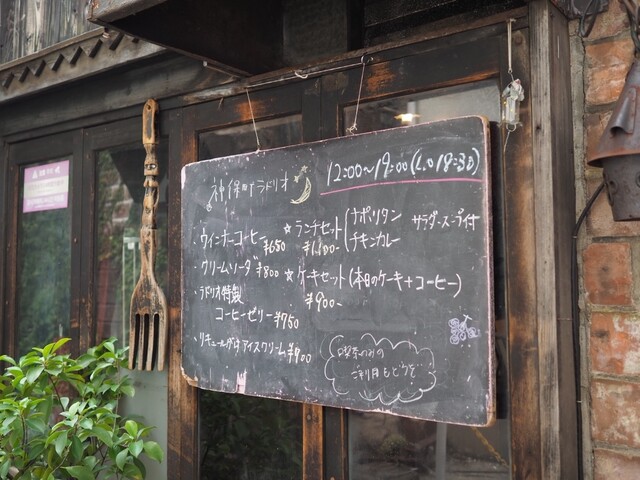 神保町ラドリオ
12:00〜19:00(L.O 18:30)
・ウィンナーコーヒー ¥650
・クリームソーダ ¥800
・ラドリオ特製
コーヒーゼリー ¥750
・リキュールがけアイスクリーム ¥900
☆ランチセット ¥1,100-
ナポリタン
チキンカレー
サラダ・スープ付
☆ケーキセット(本日のケーキ+コーヒー)
¥900-
喫茶のみの
ご利用もどうぞ